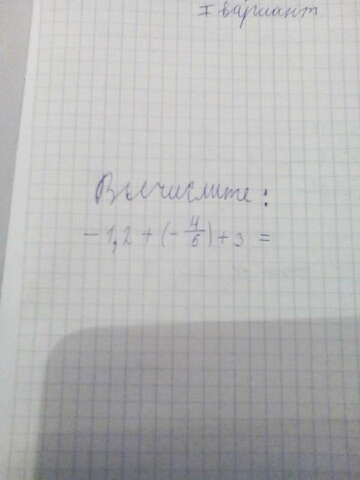 I вариант
Вычислите:
-1,2+(-4/6)+3=